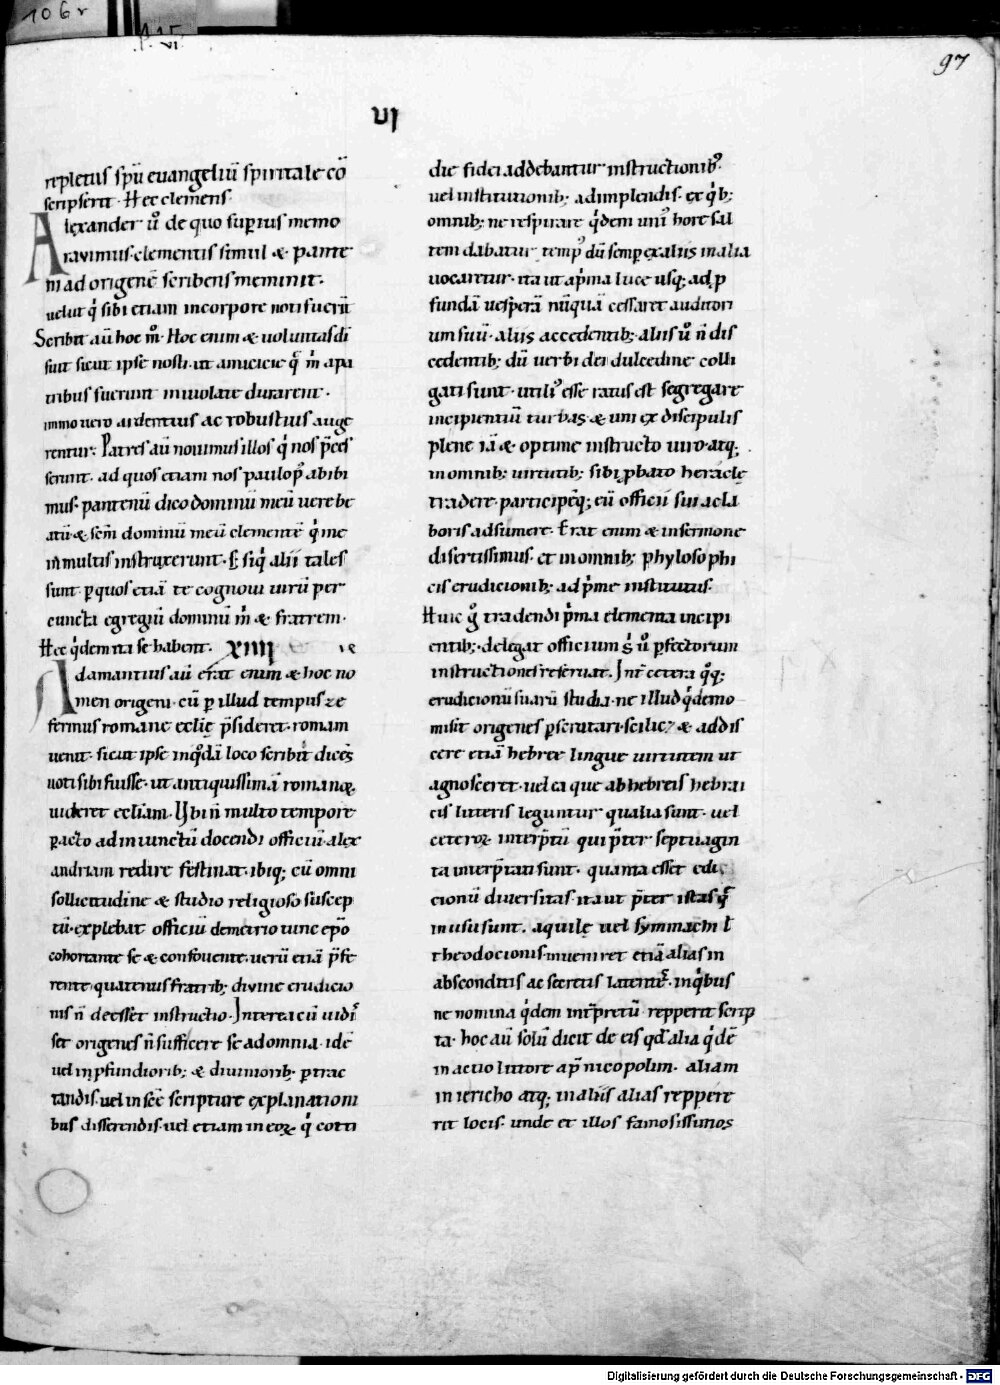 106r
97
VI
repletus spū euangeliū spiritale cō
scripserit. Hec clemens.
Alexander ū de quo supius memo
ravimus. clementis simul & pante
ni ad origenē scribens meminit.
uelut q̇ sibi etiam incorpore noti fuerīt
Scribit aū hoc m̊. Hoc enim & uoluntas di
fuit sicut ipse nosti. ut amicicie q̄ m̄ apa
tribus fuerunt inuiolate durarent.
immo uero ardentius ac robustius auge
rentur. Patres aū nouimus illos q̇ nos p̄ces
serunt. ad quos etiam nos paulop̓ abibi
mus. pantenū dico dominū meū uere be
atū & sc̄m dominū meū clementē q̇ me
in multis instruxerunt. & siq̇ alii tales
sunt. p quos etiā te cognoui uirū per
cuncta egregiū dominū m̄ & fratrem.
Hec q̇dem ita se habent. XIIII
Adamantius aū erat enim & hoc no
men origeni. cū p illud tempus ze
fermus romane ecl̄ię p̄sideret. romam
uenit. sicut ipse inq̇dā loco scribit dicēs
uoti sibi fuisse. ut antiquissimā romanoꝝ
uideret ecl̄iam. Ubi n̄ multo tempore
pacto ad iniunctū docendi officiū alex
andriam redire festinat. ibiq; cū omni
sollicitudine & studio religioso suscep
tū. explebat officiū demetrio tunc ep̄o
cohortante se & confouente. uerū etiā p̄fe
rente. quatenus fratrib; diuine erudicio
nis n̄ deesset instructio. Interea cū uidi
set origenes n̄ sufficere se ad omnia. idē
uel inpfundiorib; & diuiniorib; ptrac
tandis. uel in sc̄e scripture explanationi
bus disserendis. uel etiam in eoꝝ q̇ cotti
die fidei addebantur instructionib;
uel institutionib; adimplendis. ex q̇b;
omnib; ne respirare q̇dem uni᾿ hore sal
tem dabatur temp᾿ dū semp ex aliis in alia
uocaretur. ita ut ap̄ma luce usq; ad p
fundā uesperā nūquā cessaret auditori
um suū. aliis accedentib; aliis ū n̄ dis
cedentib; dū uerbi dei dulcedine colli
gati sunt. utili᾿ esse ratus est segregare
incipientiū turbas. & uni ex discipulis
plene iā & optime instructo uiro. atq;
in omnib; uirtutib; sibi pbato heracle
tradere. participēq; eū officii sui ac la
boris adsumere. Erat enim & in sermone
disertissimus. et in omnib; phylosophi
cis erudicionib; ad p̄me institutus.
Huic g̊ tradendi p̄ma elementa incipi
entib; delegat officium. s̄ ū pfectorum
instructiones reseruat. Int̄ cetera q̊q;
erudicionū suarū studia. ne illud q̇dem o
misit origenes pscrutari. scilicꝫ & addis
cere etiā hebree lingue uirtutem ut
agnosceret. uel ea que ab hebreis hebrai
cis litteris leguntur qualia sunt. uel
ceteroꝝ interp̄tū qui p̄ter septuagin
ta interp̄tati sunt. quanta esset edi
cionū diuersitas. ita ut p̄ter istas q̄
in usu sunt. aquile uel symmachi l̄
theodocionis. inueniret etiā alias in
absconditis ac secretis latentes. inq̇bus
ne nomina q̇dem int̄pretū repperit scrip
ta. hoc aū solū dicit de eis qd̓ alia q̇dē
in actio littore ap̄ nicopolim. aliam
in iericho atq; in aliis alias reppere
rit locis. unde et illos famosissimos
Digitalisierung gefördert durch die Deutsche Forschungsgemeinschaft - DFG